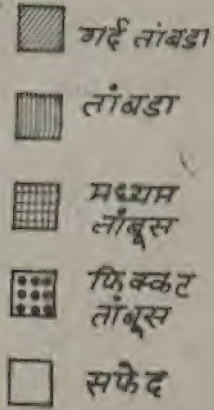 गर्द तांबडा
तांबडा
मध्यम
तांबूस
फिक्कट
तांबूस
सफेद